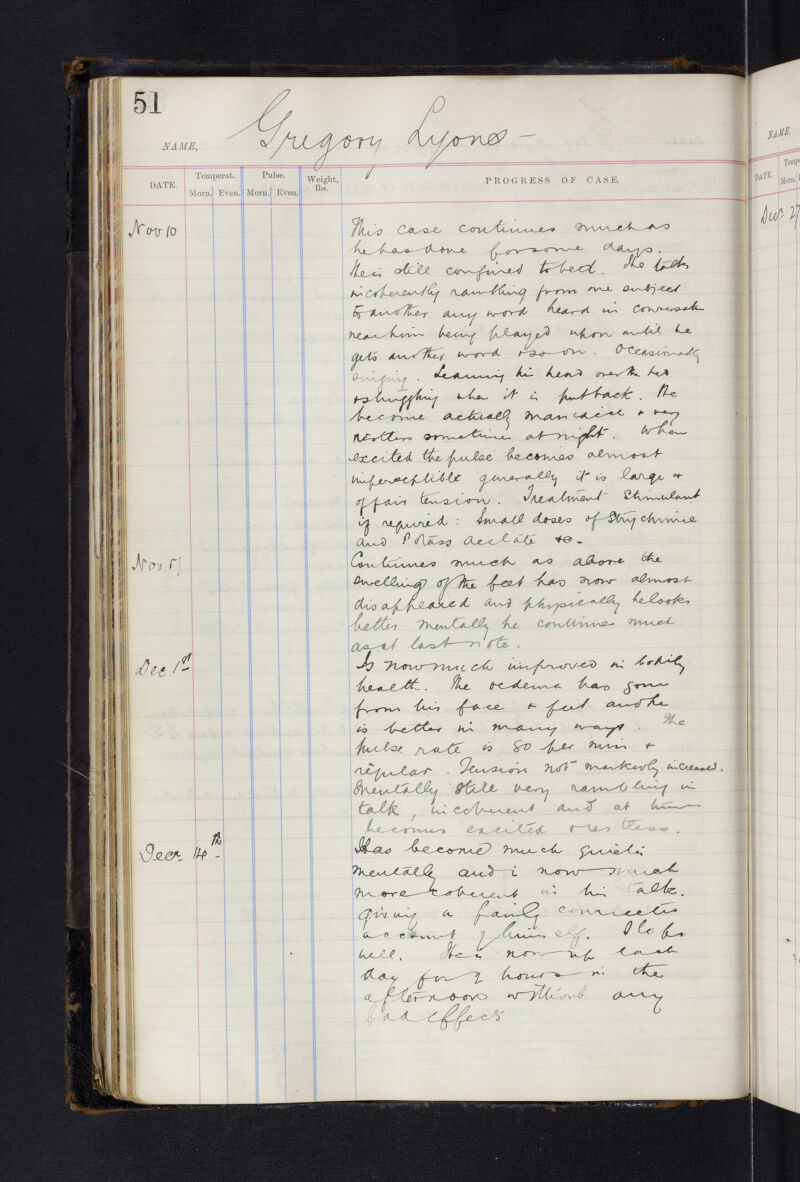 51
NAME, Gregory Lyons -
DATE. Temperat. Morn. Even. Pulse. Morn. Even. Weight, lbs. PROGRESS OF CASE.
Nov 10 This case continues much as
he has done for some days.
He is still confined to bed. He talks
incoherently rambling from one subject
to another any word heard in conversatn
near him being played upon until he
gets another word & so on. Occasionally
singing. Leaning his head over the bed
& struggling when it is put back. He
become actually maniacal & very
restless sometimes at night. When
excited the pulse becomes almost
imperceptible generally it is large &
of fair tension. Treatment Stimulant
if required: Small doses of Strychnine
and Potass acetate &c-
Nov Continues much as above the
swelling of the feet has now almost
disappeared and physically he looks
better mentally he continues much
as at last note.
Dec 1st Is now much improved in bodily
health. The oedema has gone
from his face & feet and he
is better in many ways. The
pulse rate is 80 per min &
regular. Tension not markedly increased.
Mentally still very rambling in
talk, incoherent and at times
becomes excited & restless.
Decr 14th Has become much quieter
mentally and is now much
more coherent in his talk.
giving a fairly connected
account of himself. Sleeps
well. He is now up each
day for 2 hours in the
afternoon without any
bad effects
NAME,
DATE. Temp Morn.
Decr 27